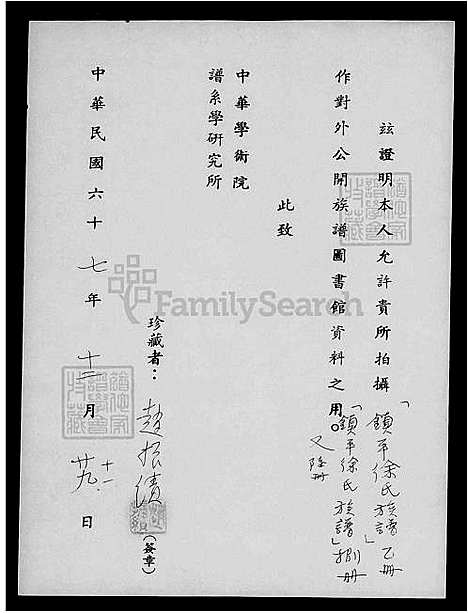 茲證明本人允許貴所拍攝「鎮平徐氏族譜」乙冊
作對外公開族譜圖書館資料之用。「鎮平徐氏族譜」捌冊
又陸冊
此致
中華學術院
譜系學研究所
珍藏者：趙振績（簽章）
中華民國六十七年十二月廿九日
十一
FamilySearch